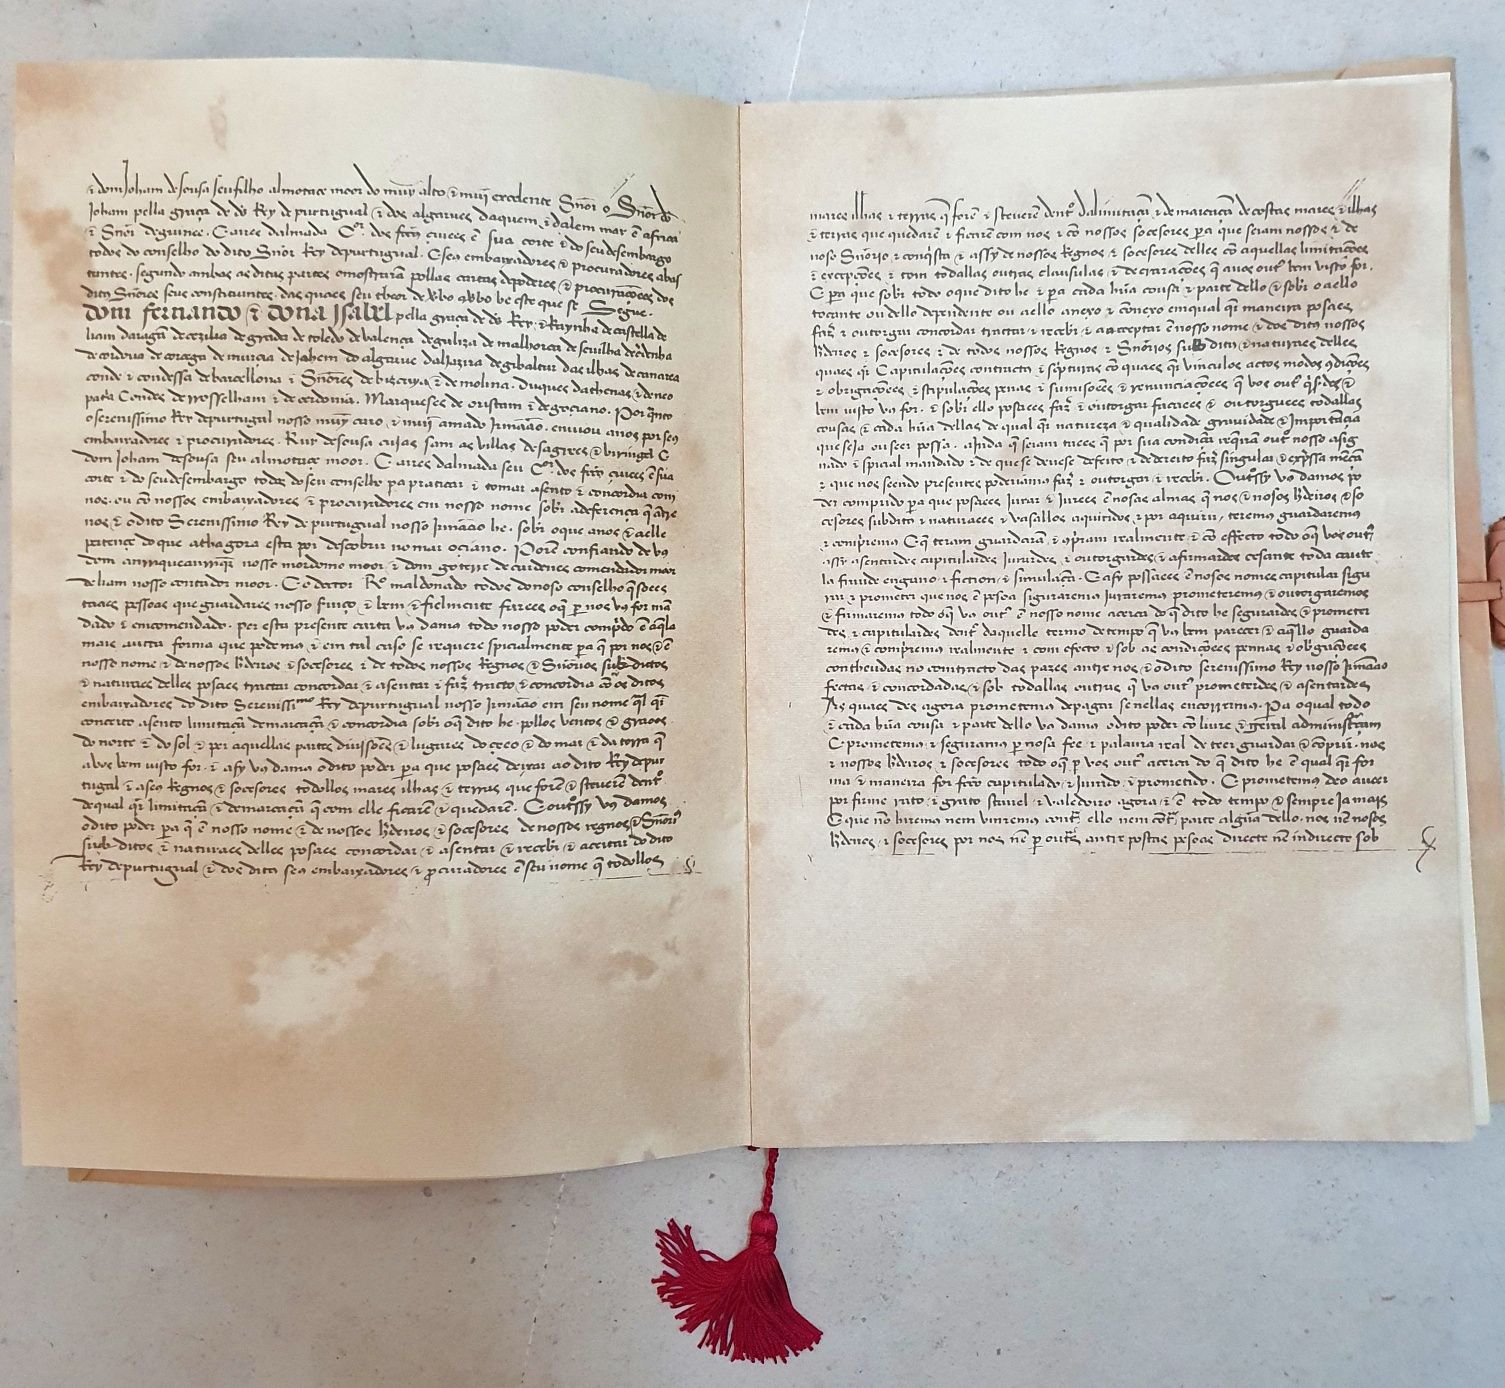 & dom Joham de sousa seu filho almotace moor do muy alto & muy excelente Sñor o Sñor dõ
Joham pella graça de ds Rey de purtugual & dos algarues daquem & dalem mar ẽ africa
& Sñor de guinee. E aires dalmada Cor. dos ciuees ẽ sua corte & do seu desembargo
todos do conselho do dito Sñor Rey de purtugual. E seus embaixadores & procuradores abas
tantes. segundo ambas as ditas partes o mostrarã pollas cartas de poderes & procurações dos
ditos Sñores seus constituintes. das quaes seu theor de vbo a vbo he este que se Segue.
dom fernando & dona Isabel pella graça de ds Rey & Raynha de castella de
liam daragã de cezilia de grada de toledo de valença de galiza de malhorca de seuilha
de cordoua de corcega de murcia de Jahem do algarue dalJazira de gibaltar das ilhas de canarea
conde & condessa de barcellona & Sñores de biscaya & de molina. duques dathenas & de neo
patia Condes de rrosselham & de cerdonia. Marqueses de oristam & de goçiano. Por quanto
o serenissimo Rey de purtugual nosso muy caro & muy amado Irmaão. enuiou a nos por seus
embaixadores & procuradores. Ruy de sousa cujas sam as villas de sagres & biringel E
dom Joham de sousa seu almotace moor. E aires dalmada seu Cor. dos ciuees ẽ sua
corte & do seu desembargo todos do seu conselho pa praticar & tomar asento & concordia com
nos. ou cõ nossos embaixadores & procuradores em nosso nome. sobre a deferença que antre
nos & o dito Serenissimo Rey de purtugual nosso Irmaão he. sobre o que a nos & a elle
pertençe do que atha gora esta por descobrir no mar oçiano. Porẽ confiando de vos
dom anrrique anrriquez nosso mordomo moor & dom goterre de cardenes comendador maior
de liam nosso contador moor. E o doctor Ro. maldonado todos do noso conselho que sooes
taaes pessoas que guardares nosso seruiço & bem & fielmente farees o que per nos vos for man
dado & encomendado. per esta presente carta vos damos todo nosso poder comprido ẽ aquella
mais auta forma que podemos & em tal caso se requere spicialmente pera que por nos & ẽ
nosso nome & de nossos herdeiros & socesores & de todos nossos Regnos & Sñorios subditos
& naturaes delles posaes trautar concordar & asentar & fazer trauto & concordia cõ os ditos
embaixadores do dito Serenissimo Rey de purtugual nosso Irmaão em seu nome qual quer
concerto. asento limitaçã demarcaçã & concordia sobre o que dito he. pollos ventos & graos.
do norte & do sol & per aquellas partes diuisoões & lugares do ceeo & do mar & da terra que
a vos bem visto for. & asy vos damos o dito poder pera que posaes deixar ao dito Rey de pur
tugal & a seus Regnos & socesores todollos mares ilhas & terras que forem & steuerem dentro.
de qual quer limitaçã & demarcaçã que com elle ficarẽ & quedarẽ. E outrossy vos damos
o dito poder pera que ẽ nosso nome & de nossos herdeiros & socesores de nossos regnos & Sñorios
subditos & naturaes delles posaes concordar & asentar & recebr & aceitar do dito
Rey de purtugual & dos ditos seus embaixadores & procuradores ẽ seu nome que todollos
mares ilhas & terras que forẽ & steuerẽ dentro da limitaçã & demarcaçã de costas mares & ilhas
& terras que quedarẽ & ficarẽ com nos & cõ nossos socesores pera que seiam nossos & de
noso Sñorio & conquista & assy de nossos Regnos & socesores delles cõ aquellas limitações
& exepções & com todallas outras clausulas & decrarações que a vos outros bem visto for.
E pera que sobre todo o que dito he & pera cada hũa cousa & parte dello & sobre o a ello
tocante ou dello dependente ou a ello anexo & conexo em qual quer maneira posaes
fazer & outorgar concordar trautar & recebr & aceptar ẽ nosso nome & dos ditos nossos
herdeiros & socesores & de todos nossos Regnos & Sñorios subditos & naturaes delles
quaes quer Capitulações contratos & scripturas cõ quaes quer vinculos actos modos condições
& obrigações & stipulações penas & sumisoẽs & renunciações que vos outros quiserdes &
bem visto vos for. & sobre ello posaees fazer & outorgar facaees & outorguees todallas
cousas & cada hũa dellas de qual quer natureza & qualidade grauidade & Importancia
que seja ou seer possa. ainda que seiam taees que por sua condiçã requeirã outro nosso asig
nado & special mandado & de que se deuese de feito & de dereito fazer singular & expressa mençã
& que nos seendo presentes poderiamos fazer & outorgar & recebr. Outrossy vos damos po
der comprido pera que posaees Jurar & Jurees ẽ nosas almas que nos & nosos herdeiros & so
cesores subditos & naturaees & vasallos aquiridos & por aquirir, teremos guardaremos
& compriremos E que teram guardarã & cõpriram realmente & cõ effecto todo o que vos outros
assy asentardes capitulardes Jurardes & outorgardes & afirmardes cesante toda caute
la fraude engano & fiction & simulaçã. E asy possaees ẽ nosos nomes capitular sigu
rar & prometer que nos ẽ pesoa siguraremos Juraremos prometeremos & outorgaremos
& firmaremos todo o que vos outros ẽ nosso nome acerca do que dito he segurardes & prometer
des & capitulardes dentro daquelle termo de tempo que vos bem parecer & aquello guarda
remos & compriremos realmente & com efecto & sob as condições pennas & obrigações
contheudas no contracto das pazes antre nos & o dito serenissimo Rey nosso Irmaão
fectas & concordadas & sob todallas outras que vos outros prometerdes & asentardes
As quaes des agora prometemos de pagar se nellas encorremos. Pa o qual todo
& cada hũa cousa & parte dello vos damos o dito poder cõ liure & geeral administraçam
E prometemos & seguramos per nosa fee & palaura real de teer guardar & comprir. nos
& nossos herdeiros & socesores todo o que per vos outros acerca do que dito he ẽ qual quer for
ma & maneira for fecto capitulado & Jurado & prometido. E prometemos de o aueer
por firme rato & grato stauel & valedoiro agora & ẽ todo tempo & sempre Ja mais
E que nõ hiremos nem viiremos contra ello nem contra parte algũa dello. nos nẽ nosos
herdeiros & socesores por nos nẽ per outras antre postas pesoas directe nẽ indirecte sob